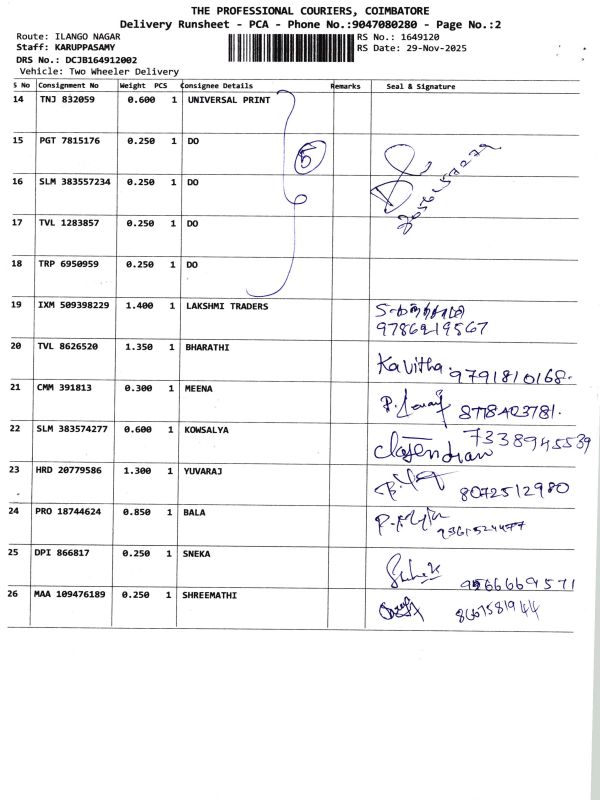 THE PROFESSIONAL COURIERS, COIMBATORE
Delivery Runsheet - PCA - Phone No.:9047080280 - Page No.:2
Route: ILANGO NAGAR RS No.: 1649120
Staff: KARUPPASAMY RS Date: 29-Nov-2025
DRS No.: DCJB164912002
Vehicle: Two Wheeler Delivery
S No Consignment No Weight PCS Consignee Details Remarks Seal & Signature
14 TNJ 832059 0.600 1 UNIVERSAL PRINT
15 PGT 7815176 0.250 1 DO 5
16 SLM 383557234 0.250 1 DO
17 TVL 1283857 0.250 1 DO
18 TRP 6950959 0.250 1 DO
19 IXM 509398229 1.400 1 LAKSHMI TRADERS
9786219567
20 TVL 8626520 1.350 1 BHARATHI
Kavitha 9791810168.
21 CMM 391813 0.300 1 MEENA
22 SLM 383574277 0.600 1 KOWSALYA
7338945539
23 HRD 20779586 1.300 1 YUVARAJ
8072512980
24 PRO 18744624 0.850 1 BALA
25 DPI 866817 0.250 1 SNEKA
26 MAA 109476189 0.250 1 SHREEMATHI